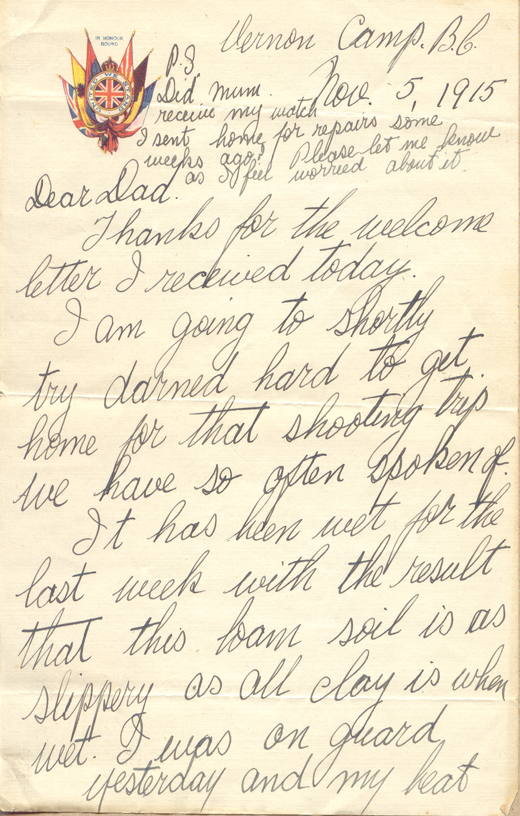 IN HONOUR
BOUND
UNITED WE STAND
Vernon Camp. B.C.
Nov. 5, 1915
P.S.
Did Mum.
receive my watch
I sent home for repairs some
weeks ago? Please let me know
as I feel worried about it.
Dear Dad.
Thanks for the welcome
letter I received today.
I am going to shortly
try darned hard to get
home for that shooting trip
we have so often spoken of.
It has been wet for the
last week with the result
that this loam soil is as
slippery as all clay is when
wet. I was on guard
yesterday and my beat